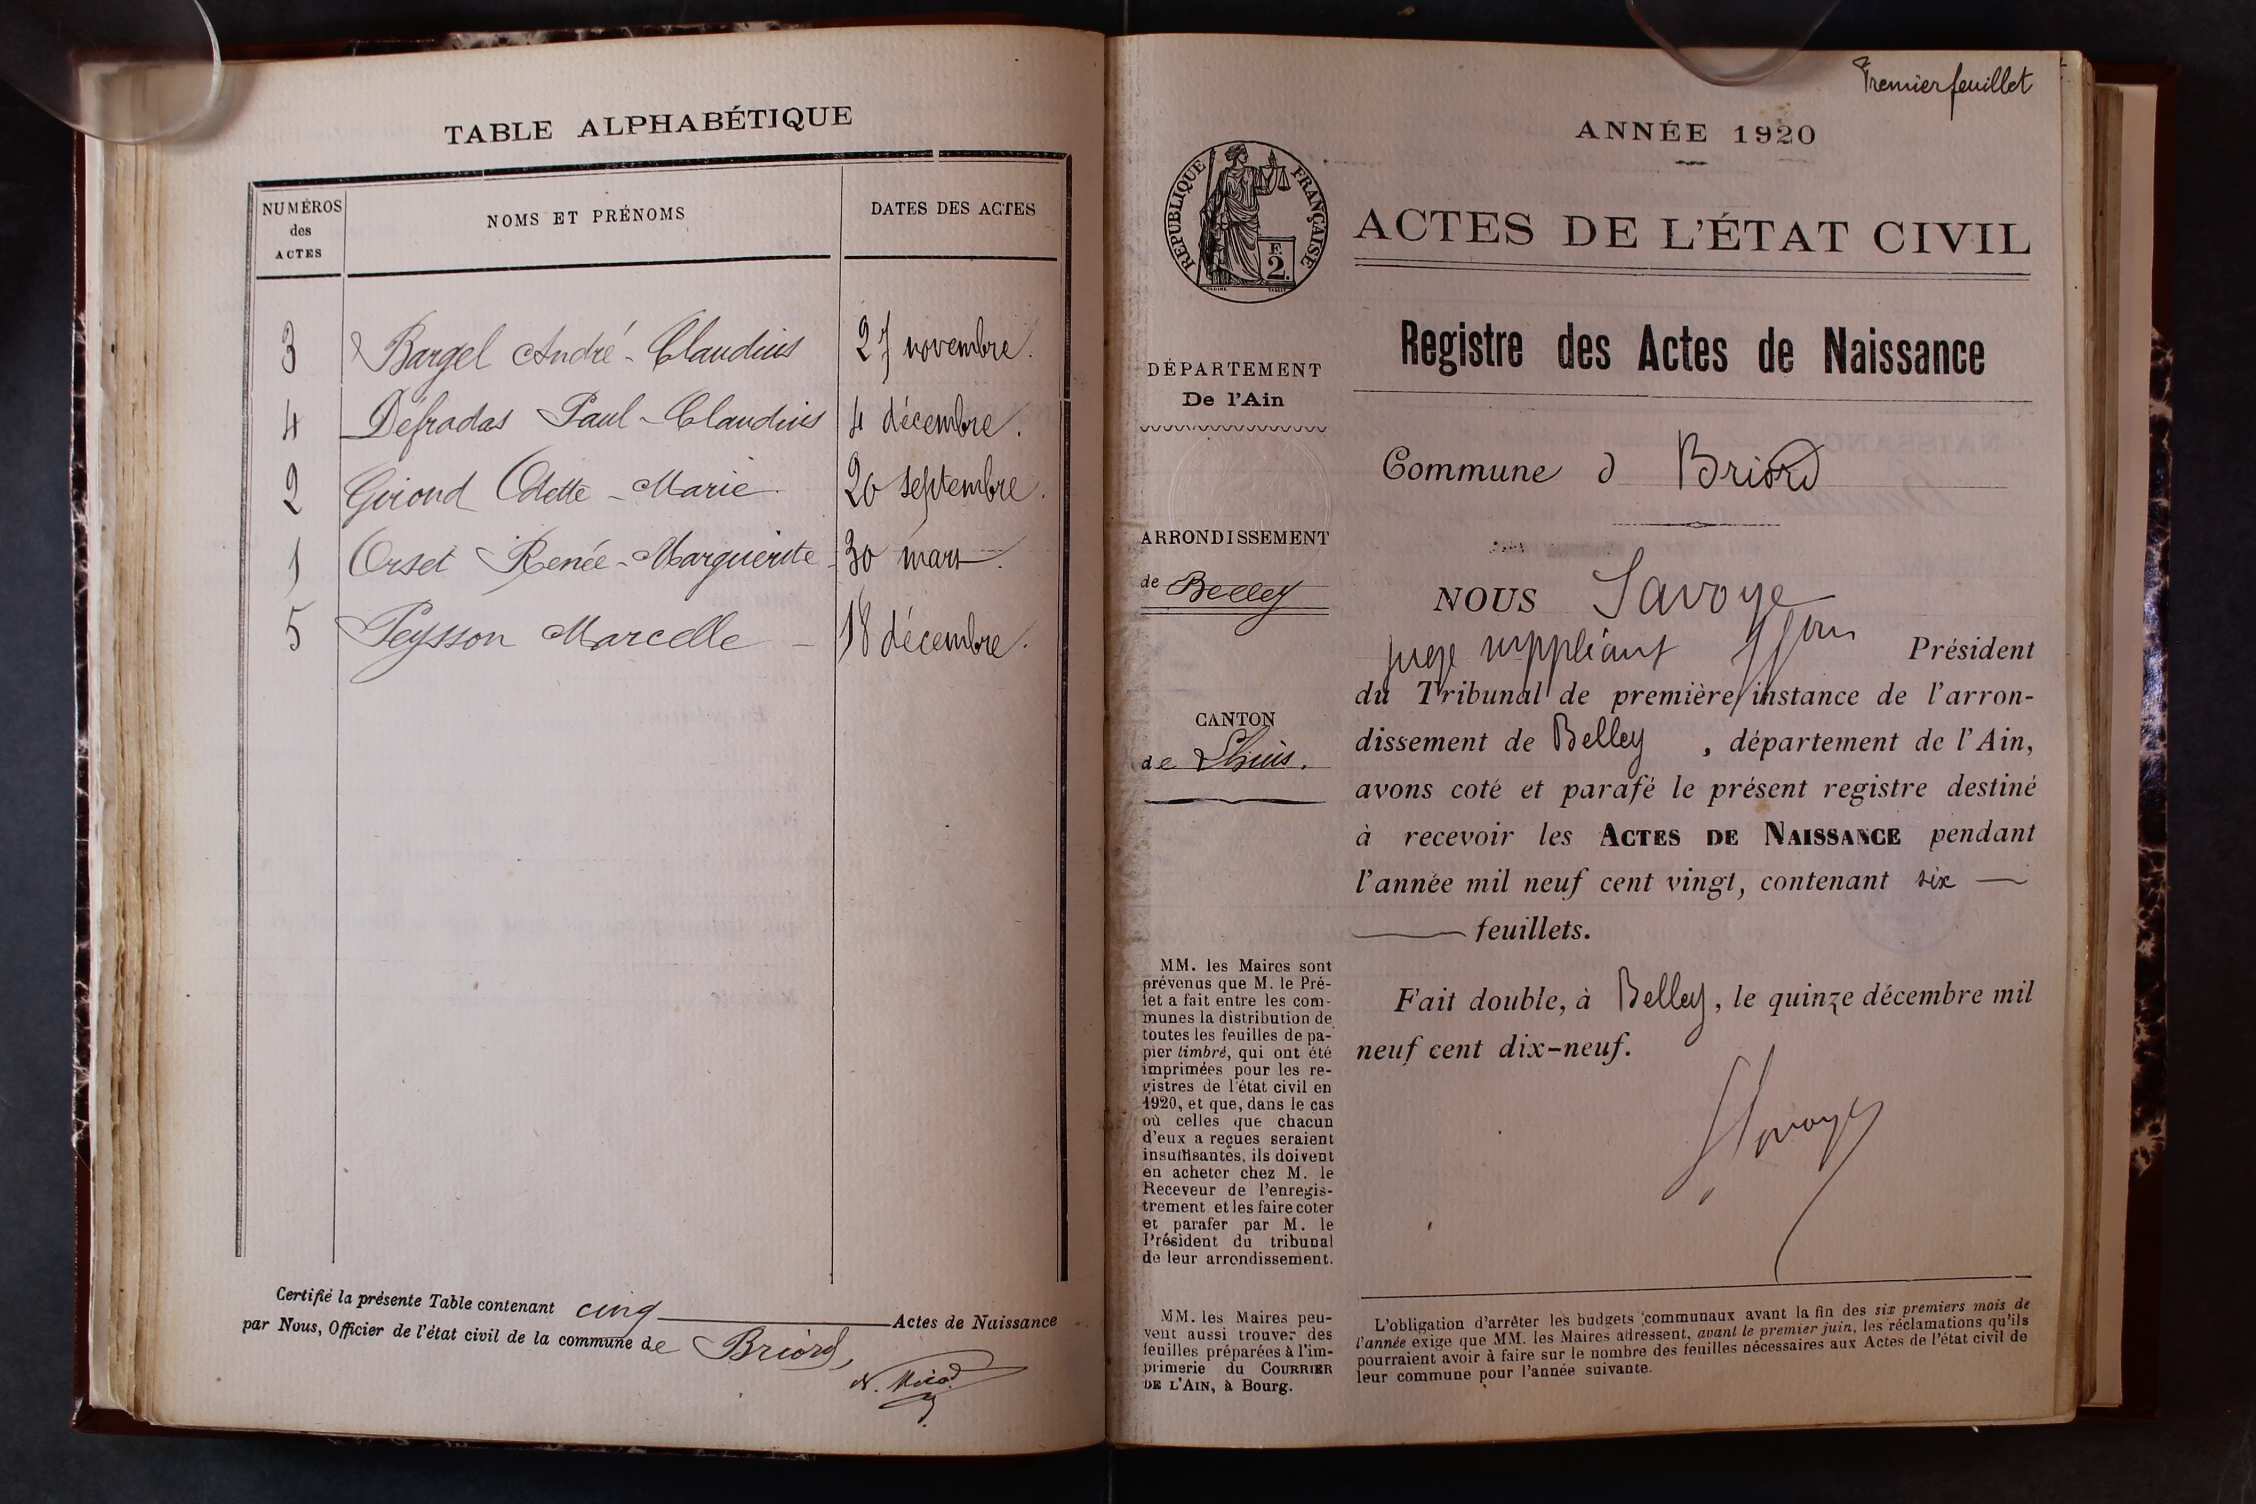 TABLE ALPHABÉTIQUE
NUMÉROS
des
ACTES
NOMS ET PRÉNOMS
DATES DES ACTES
3 Bargel André-Claudius 27 novembre.
4 Défradas Paul-Claudius 4 décembre.
2 Girond Odette-Marie 20 septembre.
1 Orset Renée-Marguerite 30 mars.
5 Peysson Marcelle 18 décembre.
Certifié la présente Table contenant cinq Actes de Naissance
par Nous, Officier de l'état civil de la commune de Briord,
Premier feuillet
ANNÉE 1920
RÉPUBLIQUE FRANÇAISE
F.
2.
ACTES DE L'ÉTAT CIVIL
Registre des Actes de Naissance
DÉPARTEMENT
De l'Ain
Commune d Briord
ARRONDISSEMENT
de Belley
CANTON
de Lhuis.
NOUS Savoye
juge suppléant Président
du Tribunal de première instance de l'arron-
dissement de Belley, département de l'Ain,
avons coté et parafé le présent registre destiné
à recevoir les ACTES DE NAISSANCE pendant
l'année mil neuf cent vingt, contenant six
feuillets.
Fait double, à Belley, le quinze décembre mil
neuf cent dix-neuf.
Savoye
MM. les Maires sont
prévenus que M. le Pré-
fet a fait entre les com-
munes la distribution de
toutes les feuilles de pa-
pier timbré, qui ont été
imprimées pour les re-
gistres de l'état civil en
1920, et que, dans le cas
où celles que chacun
d'eux a reçues seraient
insuffisantes, ils doivent
en acheter chez M. le
Receveur de l'enregis-
trement et les faire coter
et parafer par M. le
Président du tribunal
de leur arrondissement.
MM. les Maires peu-
vent aussi trouver des
feuilles préparées à l'im-
primerie du COURRIER
DE L'AIN, à Bourg.
L'obligation d'arrêter les budgets communaux avant la fin des six premiers mois de
l'année exige que MM. les Maires adressent, avant le premier juin, les réclamations qu'ils
pourraient avoir à faire sur le nombre des feuilles nécessaires aux Actes de l'état civil de
leur commune pour l'année suivante.